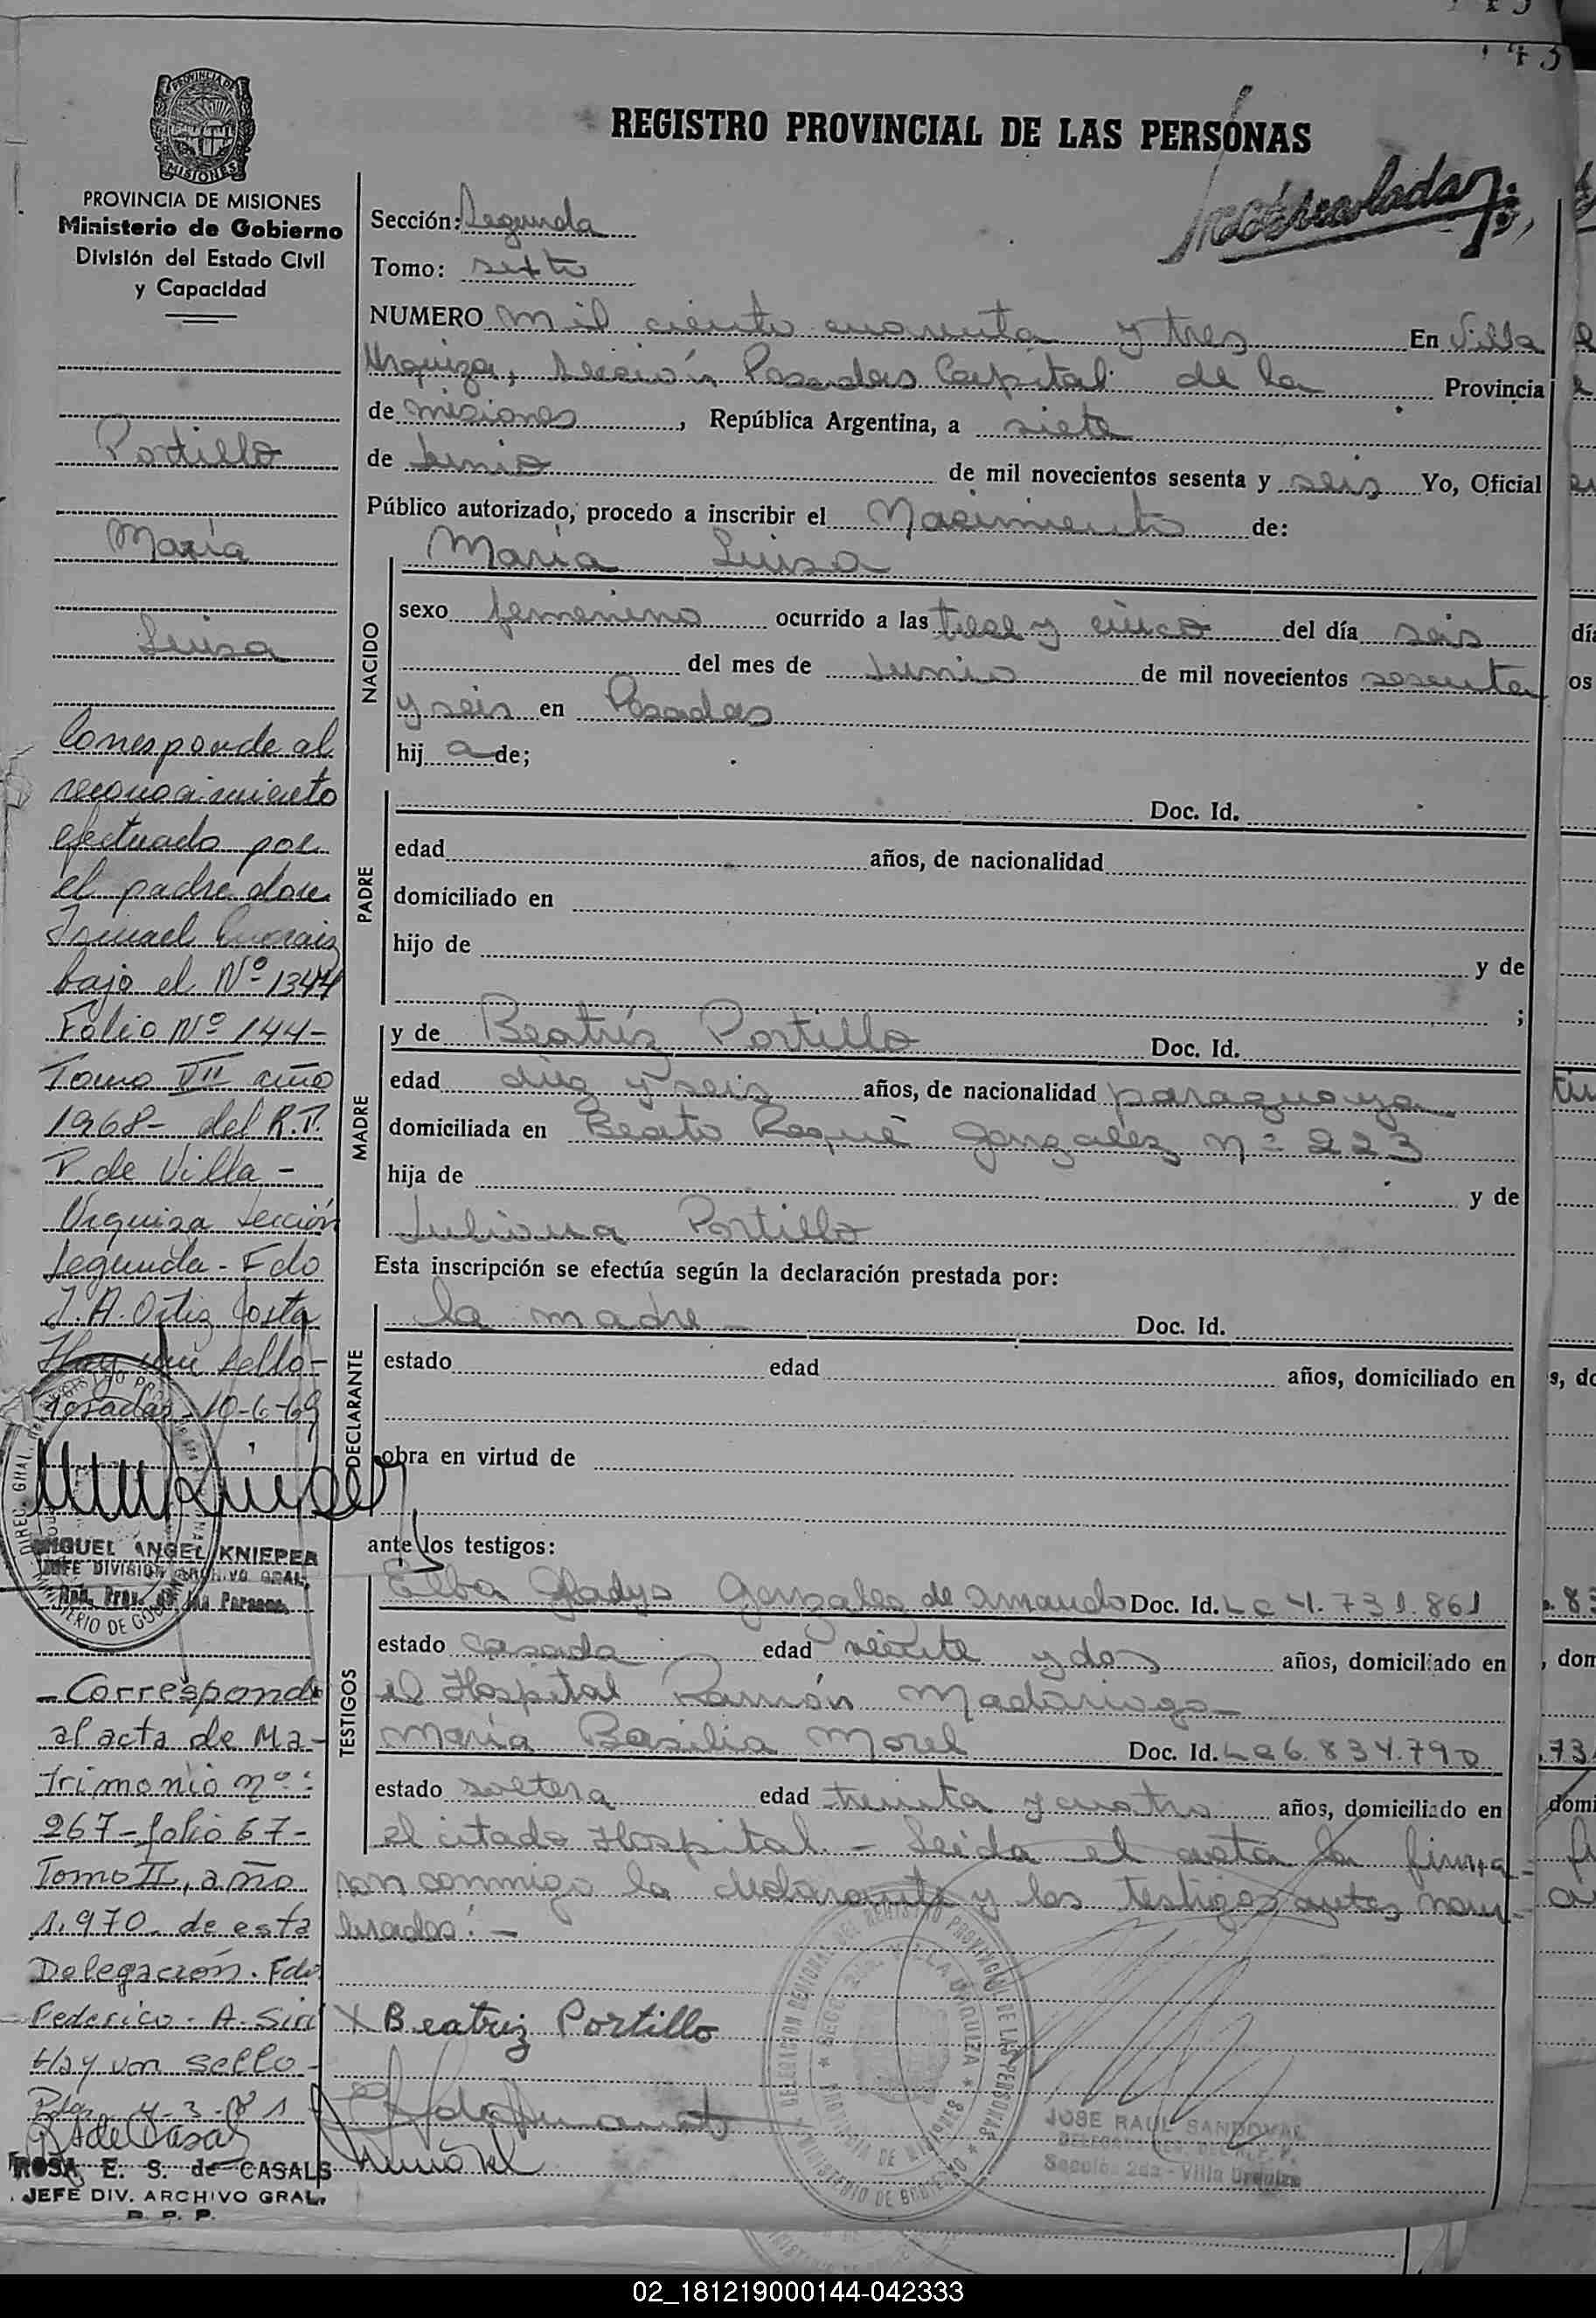 143
REGISTRO PROVINCIAL DE LAS PERSONAS
PROVINCIA DE MISIONES
Ministerio de Gobierno
División del Estado Civil
y Capacidad
Portillo
María
Luisa
Corresponde al
reconocimiento
efectuado por
el padre don
Ismael
bajo el Nº 1344
Folio Nº 144-
Tomo VII año
1968- del R.P.
P. de Villa -
Urquiza Sección
Segunda - Fdo
J. A. Ortiz Costa
Hay un sello-
Posadas, 10-6-69
MIGUEL ANGEL KNIEPER
JEFE DIVISION ARCHIVO GRAL.
- Corresponde
al acta de Ma-
trimonio nº:
267 - folio 67 -
Tomo II, año
1.970 - de esta
Delegación. Fdo
Federico. A. Siri
Hay un sello -
ROSA E. S. de CASALS
JEFE DIV. ARCHIVO GRAL.
R. P. P.
Sección: Segunda
Tomo: sexto
NUMERO mil ciento cuarenta y tres En Villa
Urquiza, sección Posadas Capital de la Provincia
de misiones, República Argentina, a siete
de Junio de mil novecientos sesenta y seis Yo, Oficial
Público autorizado, procedo a inscribir el Nacimiento de:
NACIDO
María Luisa
sexo femenino ocurrido a las trece y cinco del día seis
del mes de Junio de mil novecientos sesenta
y seis en Posadas
hij a de;
PADRE
Doc. Id.
edad años, de nacionalidad
domiciliado en
hijo de y de
;
MADRE
y de Beatríz Portillo Doc. Id.
edad diez y seis años, de nacionalidad paraguaya
domiciliada en Beato Roque Gonzalez nº 223
hija de y de
Juliana Portillo
Esta inscripción se efectúa según la declaración prestada por:
DECLARANTE
la madre - Doc. Id.
estado edad años, domiciliado en
obra en virtud de
ante los testigos:
TESTIGOS
Elba Gladys Gonzales de Amando Doc. Id. L C 4.731.861
estado casada edad veinte y dos años, domiciliado en
el Hospital Ramón Madariaga -
María Basilia Morel Doc. Id. L C 6.834.790
estado soltera edad treinta y cuatro años, domiciliado en
el citado Hospital - Leída el acta la firma-
ron conmigo la declarante y los testigos antes nom-
brados: -
X Beatriz Portillo
JOSE RAUL SANDOVAL
Sección 2da - Villa Urquiza
02_181219000144-042333